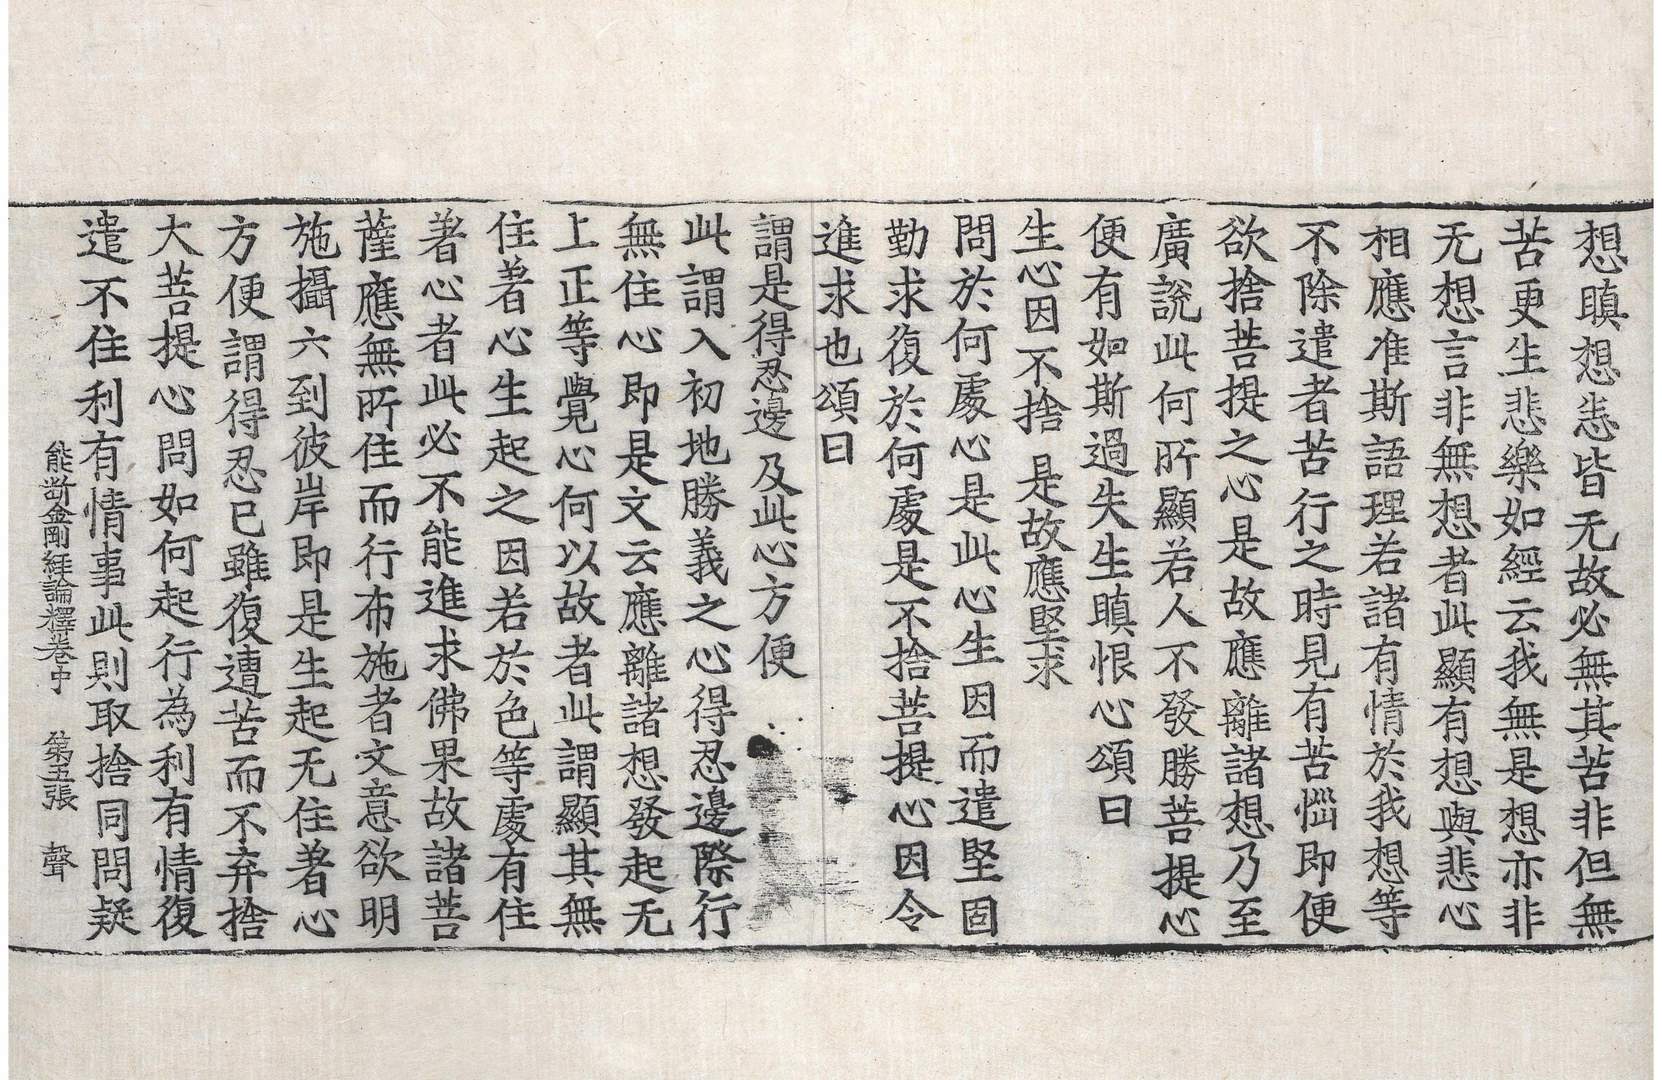 想瞋想恚皆无故必無其苦非但無
苦更生悲樂如經云我無是想亦非
无想言非無想者此顯有想與悲心
相應准斯語理若諸有情於我想等
不除遣者苦行之時見有苦惱即便
欲捨菩提之心是故應離諸想乃至
廣說此何所顯若人不發勝菩提心
便有如斯過失生瞋恨心頌曰
生心因不捨 是故應堅求
問於何處心是此心生因而遣堅固
勤求復於何處是不捨菩提心因令
進求也頌曰
謂是得忍邊 及此心方便
此謂入初地勝義之心得忍邊際行
無住心即是文云應離諸想發起无
上正等覺心何以故者此謂顯其無
住著心生起之因若於色等處有住
著心者此必不能進求佛果故諸菩
薩應無所住而行布施者文意欲明
施攝六到彼岸即是生起无住著心
方便謂得忍已雖復遭苦而不弃捨
大菩提心問如何起行為利有情復
遣不住利有情事此則取捨同問疑
能断金剛經論釋卷中 第五張 聲